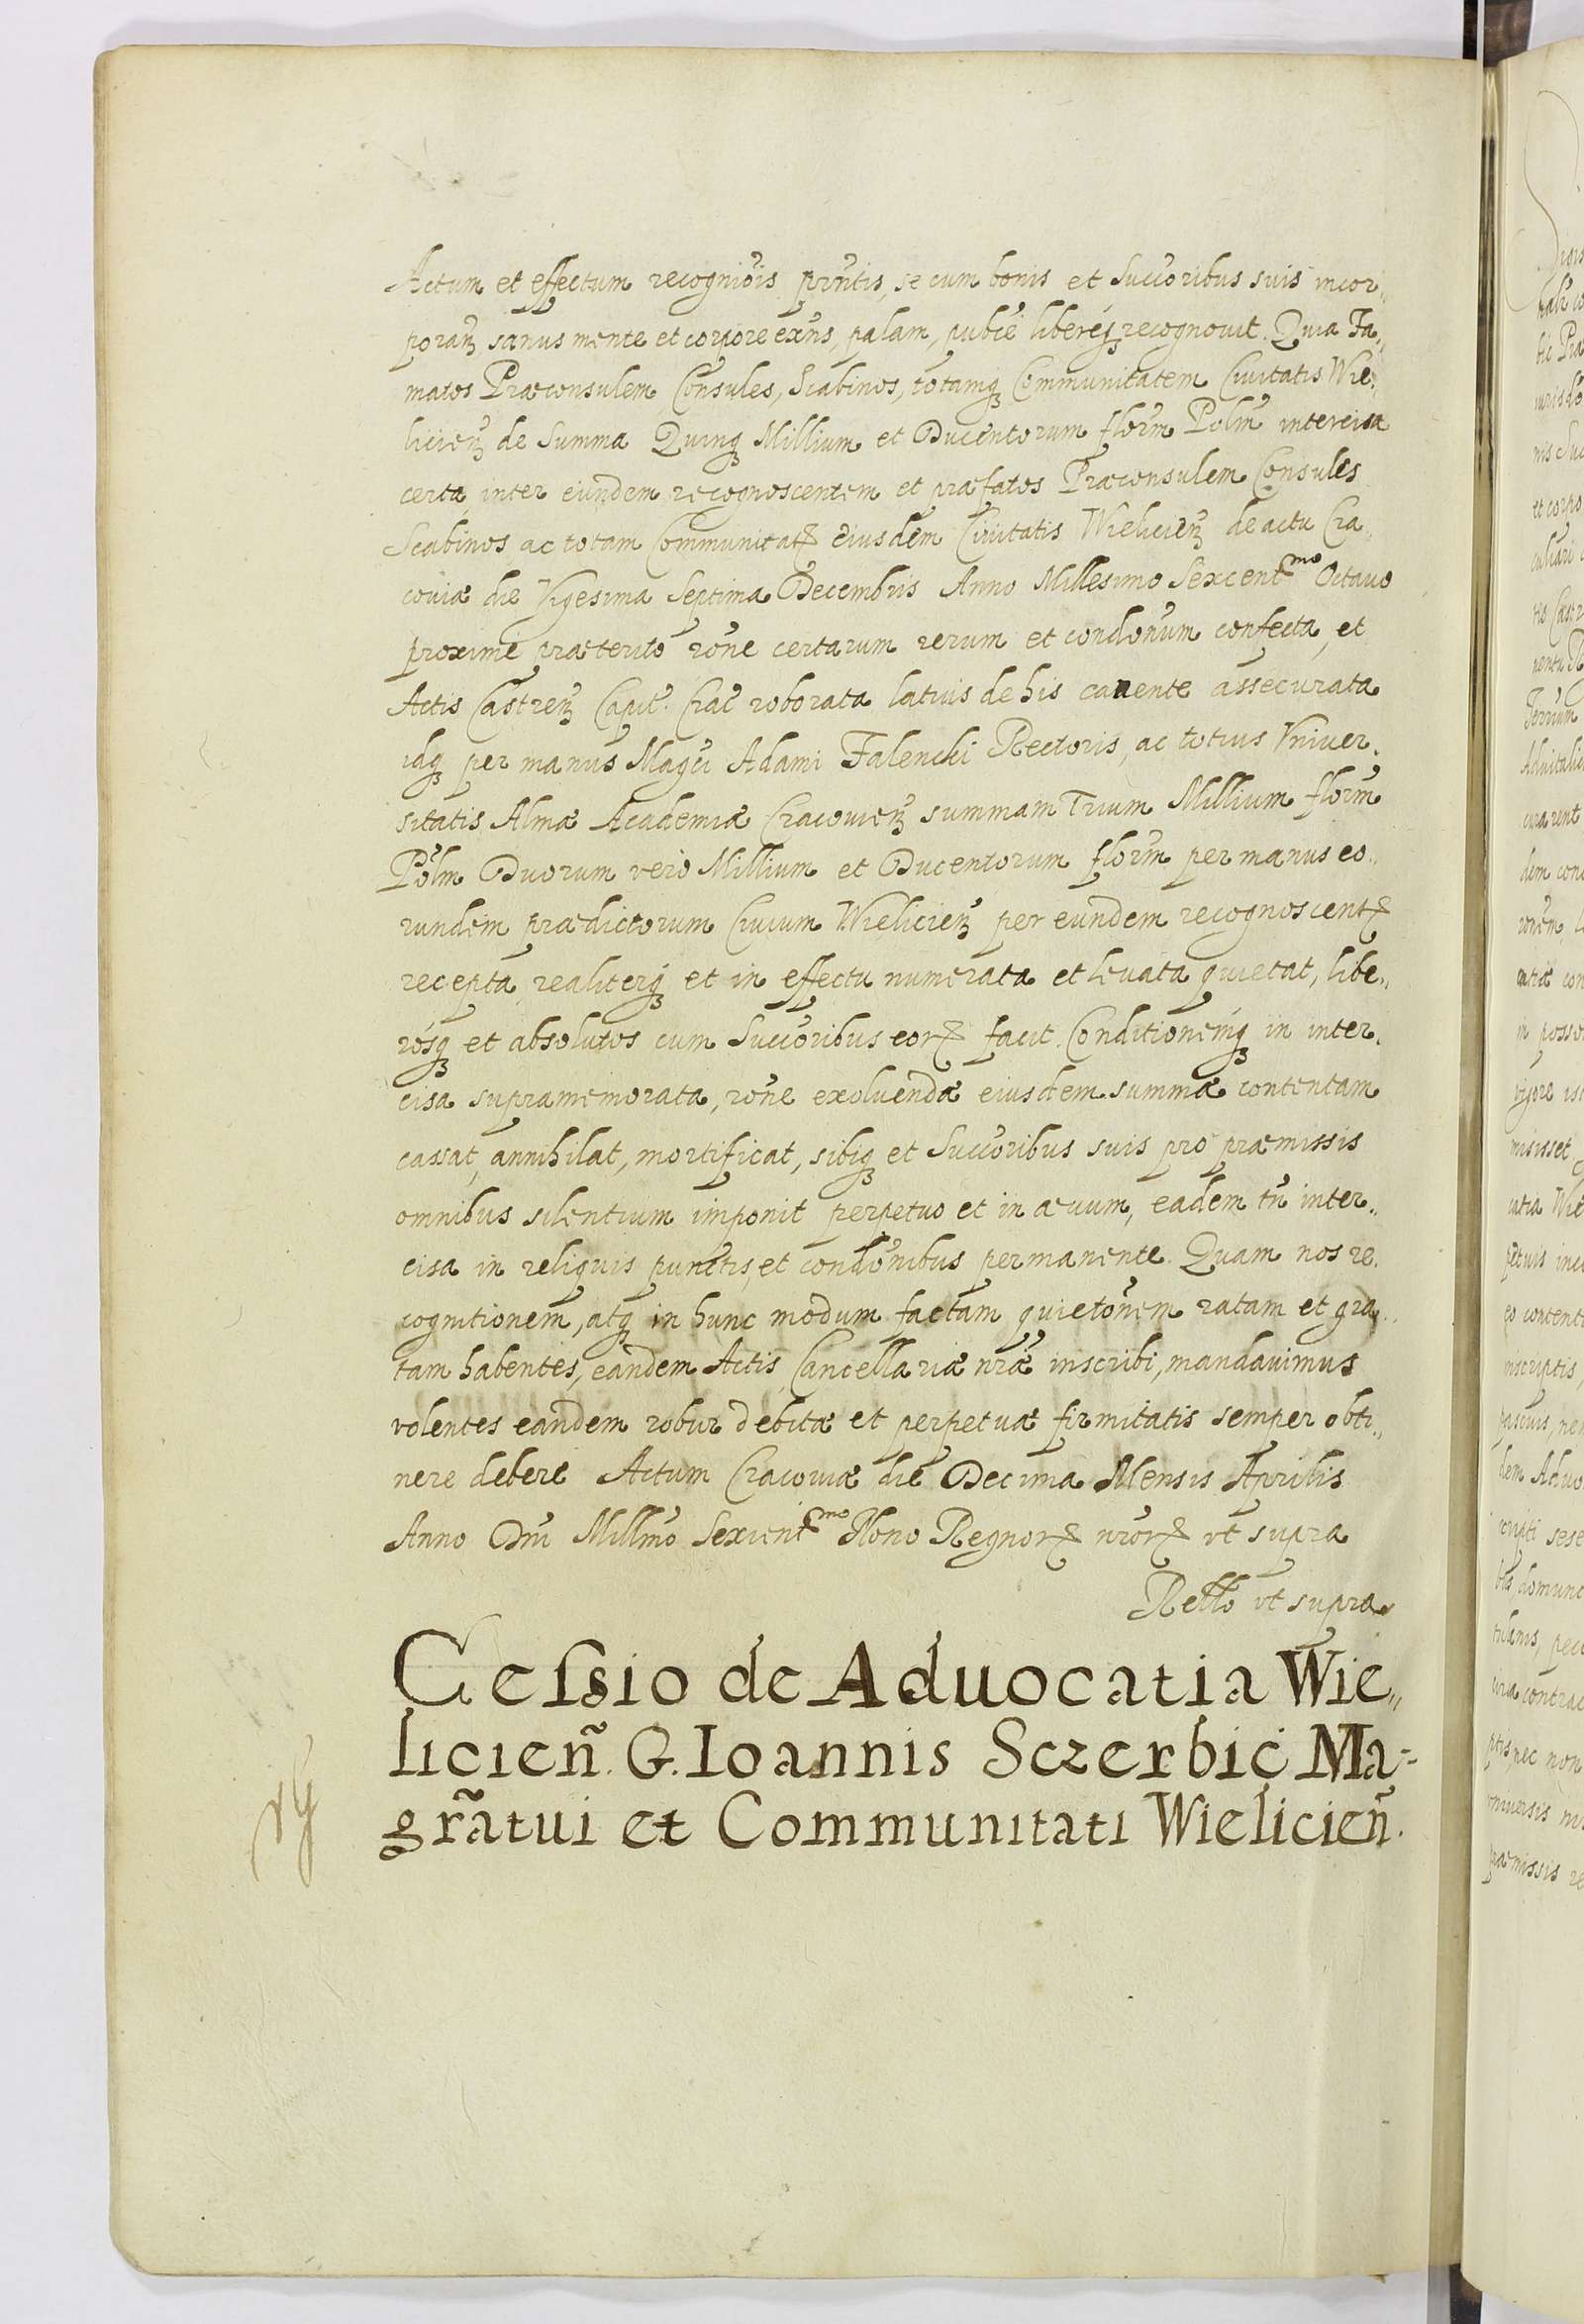 Actum et effectum recognio͂is pr͂ntis, se cum bonis et Succ͂oribus suis incor„
poran͂ sanus mente et corpore ex͂ns, palam, publ͂ce liberéq recognouit. Quia Fa„
matos Præconsulem Consules, Scabinos, totamq Communitatem Ciuitatis Wie„
licien͂ de Summa Quinq Millium et Ducentorum flor͂m Pol͂m intercisa
certa inter eundem recognoscentem et præfatos Præconsulem Consules
Scabinos ac totam Communitat͂ eiusdem Ciuitatis Wielicien͂ de actu Cra„
couiæ die Vigesima Septima Decembris Anno Millesimo Sexcent^mo Octauo
proxime præterito ro͂ne certarum rerum et condo͂num confecta, et
Actis Castren͂ Capit͂. Crac͂ roborata latius de his cauente assecurata
idq per manus Mag͂ci Adami Falencki Rectoris, ac totius Vniuer„
sitatis Almæ Academiæ Cracouien͂ summam Trium Millium flor͂m
Pol͂m Duorum vero Millium et Ducentorum flor͂m per manus eo„
rundem prædictorum Ciuium Wielicien͂ per eundem recognoscent͂
recepta realiterq et in effectu numerata et leuata quietat, libe„
rosq et absolutos cum Succ͂oribus eor͂ facit. Conditionemq in inter„
cisa supramemorata, ro͂ne exoluendæ eiusdem summæ contentam
cassat, annihilat, mortificat, sibiq et Succ͂oribus suis pro præmissis
omnibus silentium imponit perpetuo et in æuum, eadem tn͂ inter„
cisa in reliquis punctis et condo͂nibus permanente. Quam nos re„
cognitionem, atq in hunc modum factam quieto͂nem ratam et gra„
tam habentes, eandem Actis Cancellariæ nr͂æ inscribi, mandauimus
volentes eandem robur debitæ et perpetuæ firmitatis semper obti„
nere debere Actum Cracouiæ die Decima Mensis Aprilis
Anno Dn͂i Mill͂mo Sexcent^mo Nono Regnor͂ nr͂or͂ vt supra
Rel͂lo vt supra
Cessio de Aduocatia Wie„
licien͂. G. Ioannis Sczerbic Ma-
gr͂atui et Communitati Wielicien͂.